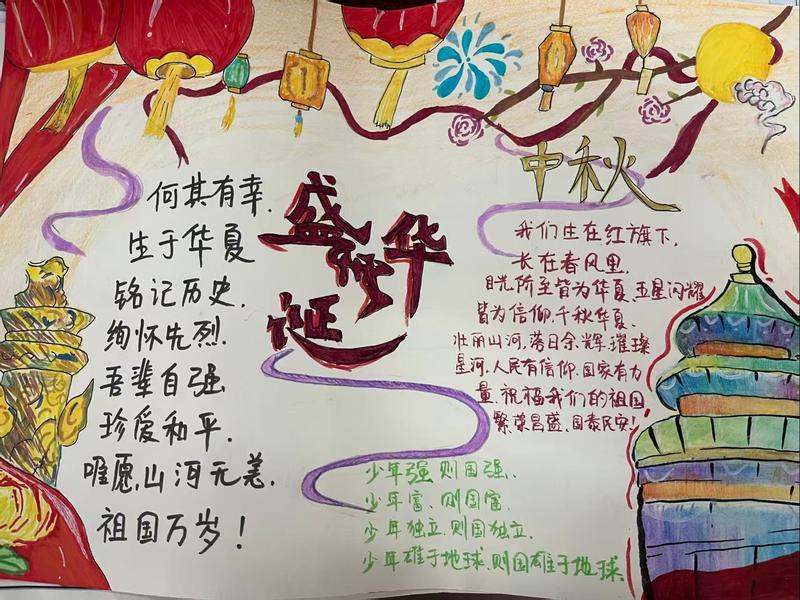 何其有幸.
生于华夏
铭记历史.
绚怀先烈.
吾辈自强
珍爱和平.
唯愿,山河无恙.
祖国万岁!
盛世华诞
中秋
我们生在红旗下,
长在春风里.
目光所至皆为华夏.五星闪耀
皆为信仰.千秋华夏.
壮丽山河,落日余辉.璀璨
星河.人民有信仰.国家有力
量.祝福我们的祖国
繁荣昌盛.国泰民安!
少年强,则国强.
少年富、则国富.
少年独立.则国独立.
少年雄于地球.则国雄于地球.